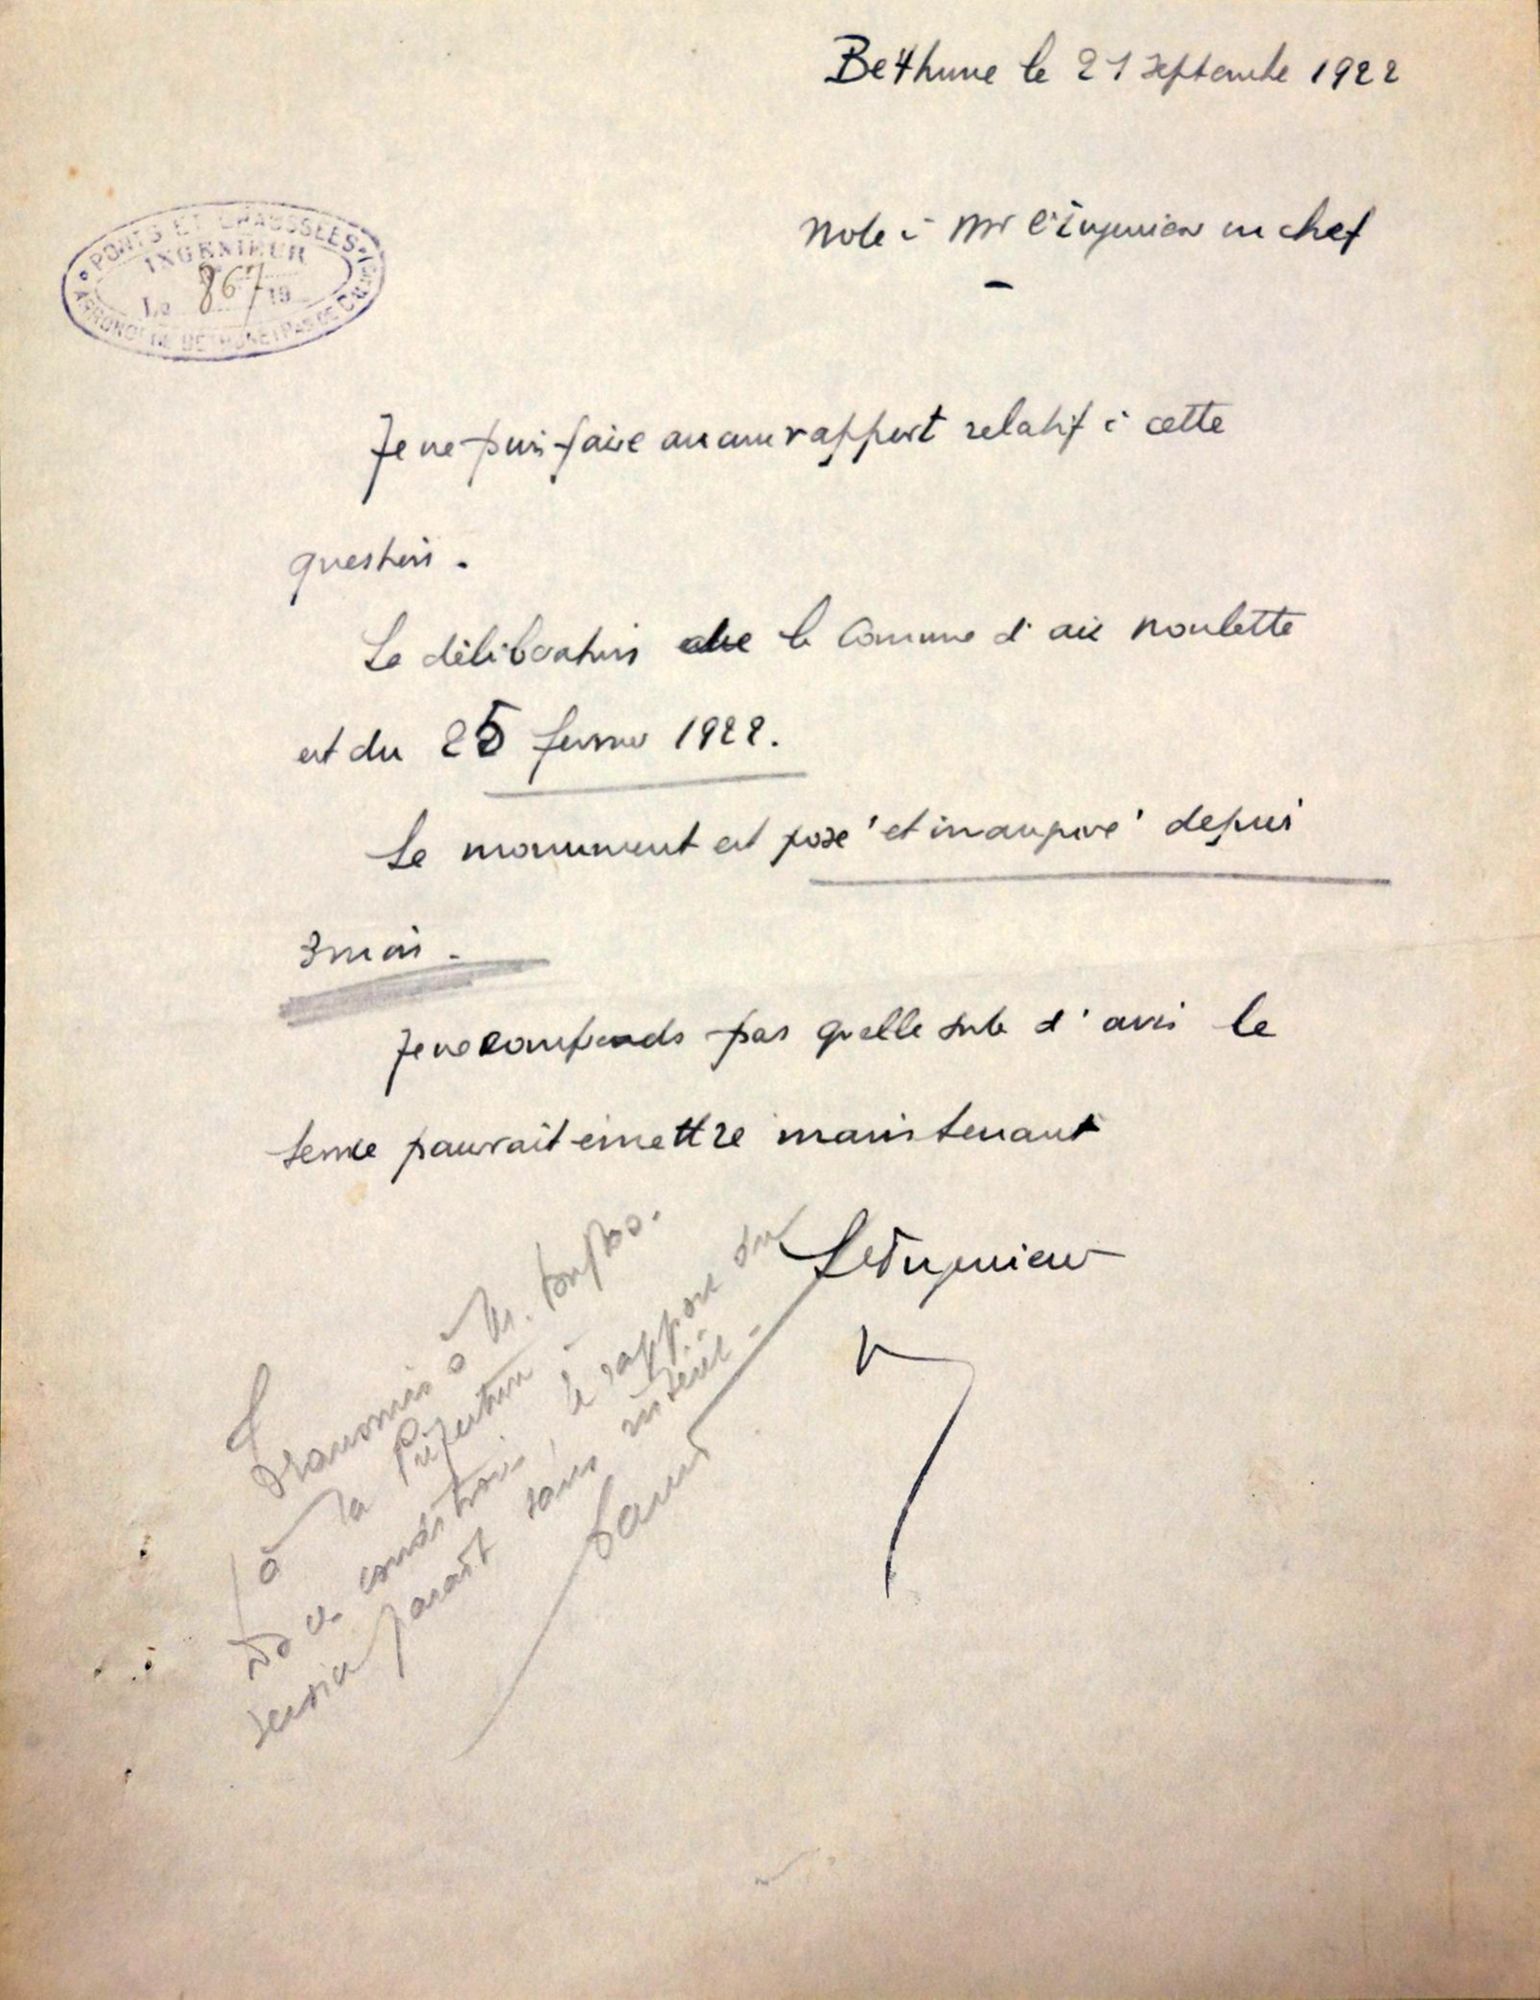 Bethune le 21 septembre 1922
PONTS ET CHAUSSÉES
INGÉNIEUR
Le 867 19
ARRONDT DE BETHUNE (PAS DE CAIS)
Note à Mr l'ingenieur en chef
Je ne puis faire aucun rapport relatif à cette
question.
La délibération de la Commune d'aix noulette
est du 25 fevrier 1922.
Le monument est posé et inauguré depuis
3 mois.
Je ne comprends pas quelle sorte d'avis le
service pourrait émettre maintenant
Le Ingenieur
Transmis à Mr.
à la Préfecture
conditions, le rapport du
service paraît sans intérêt